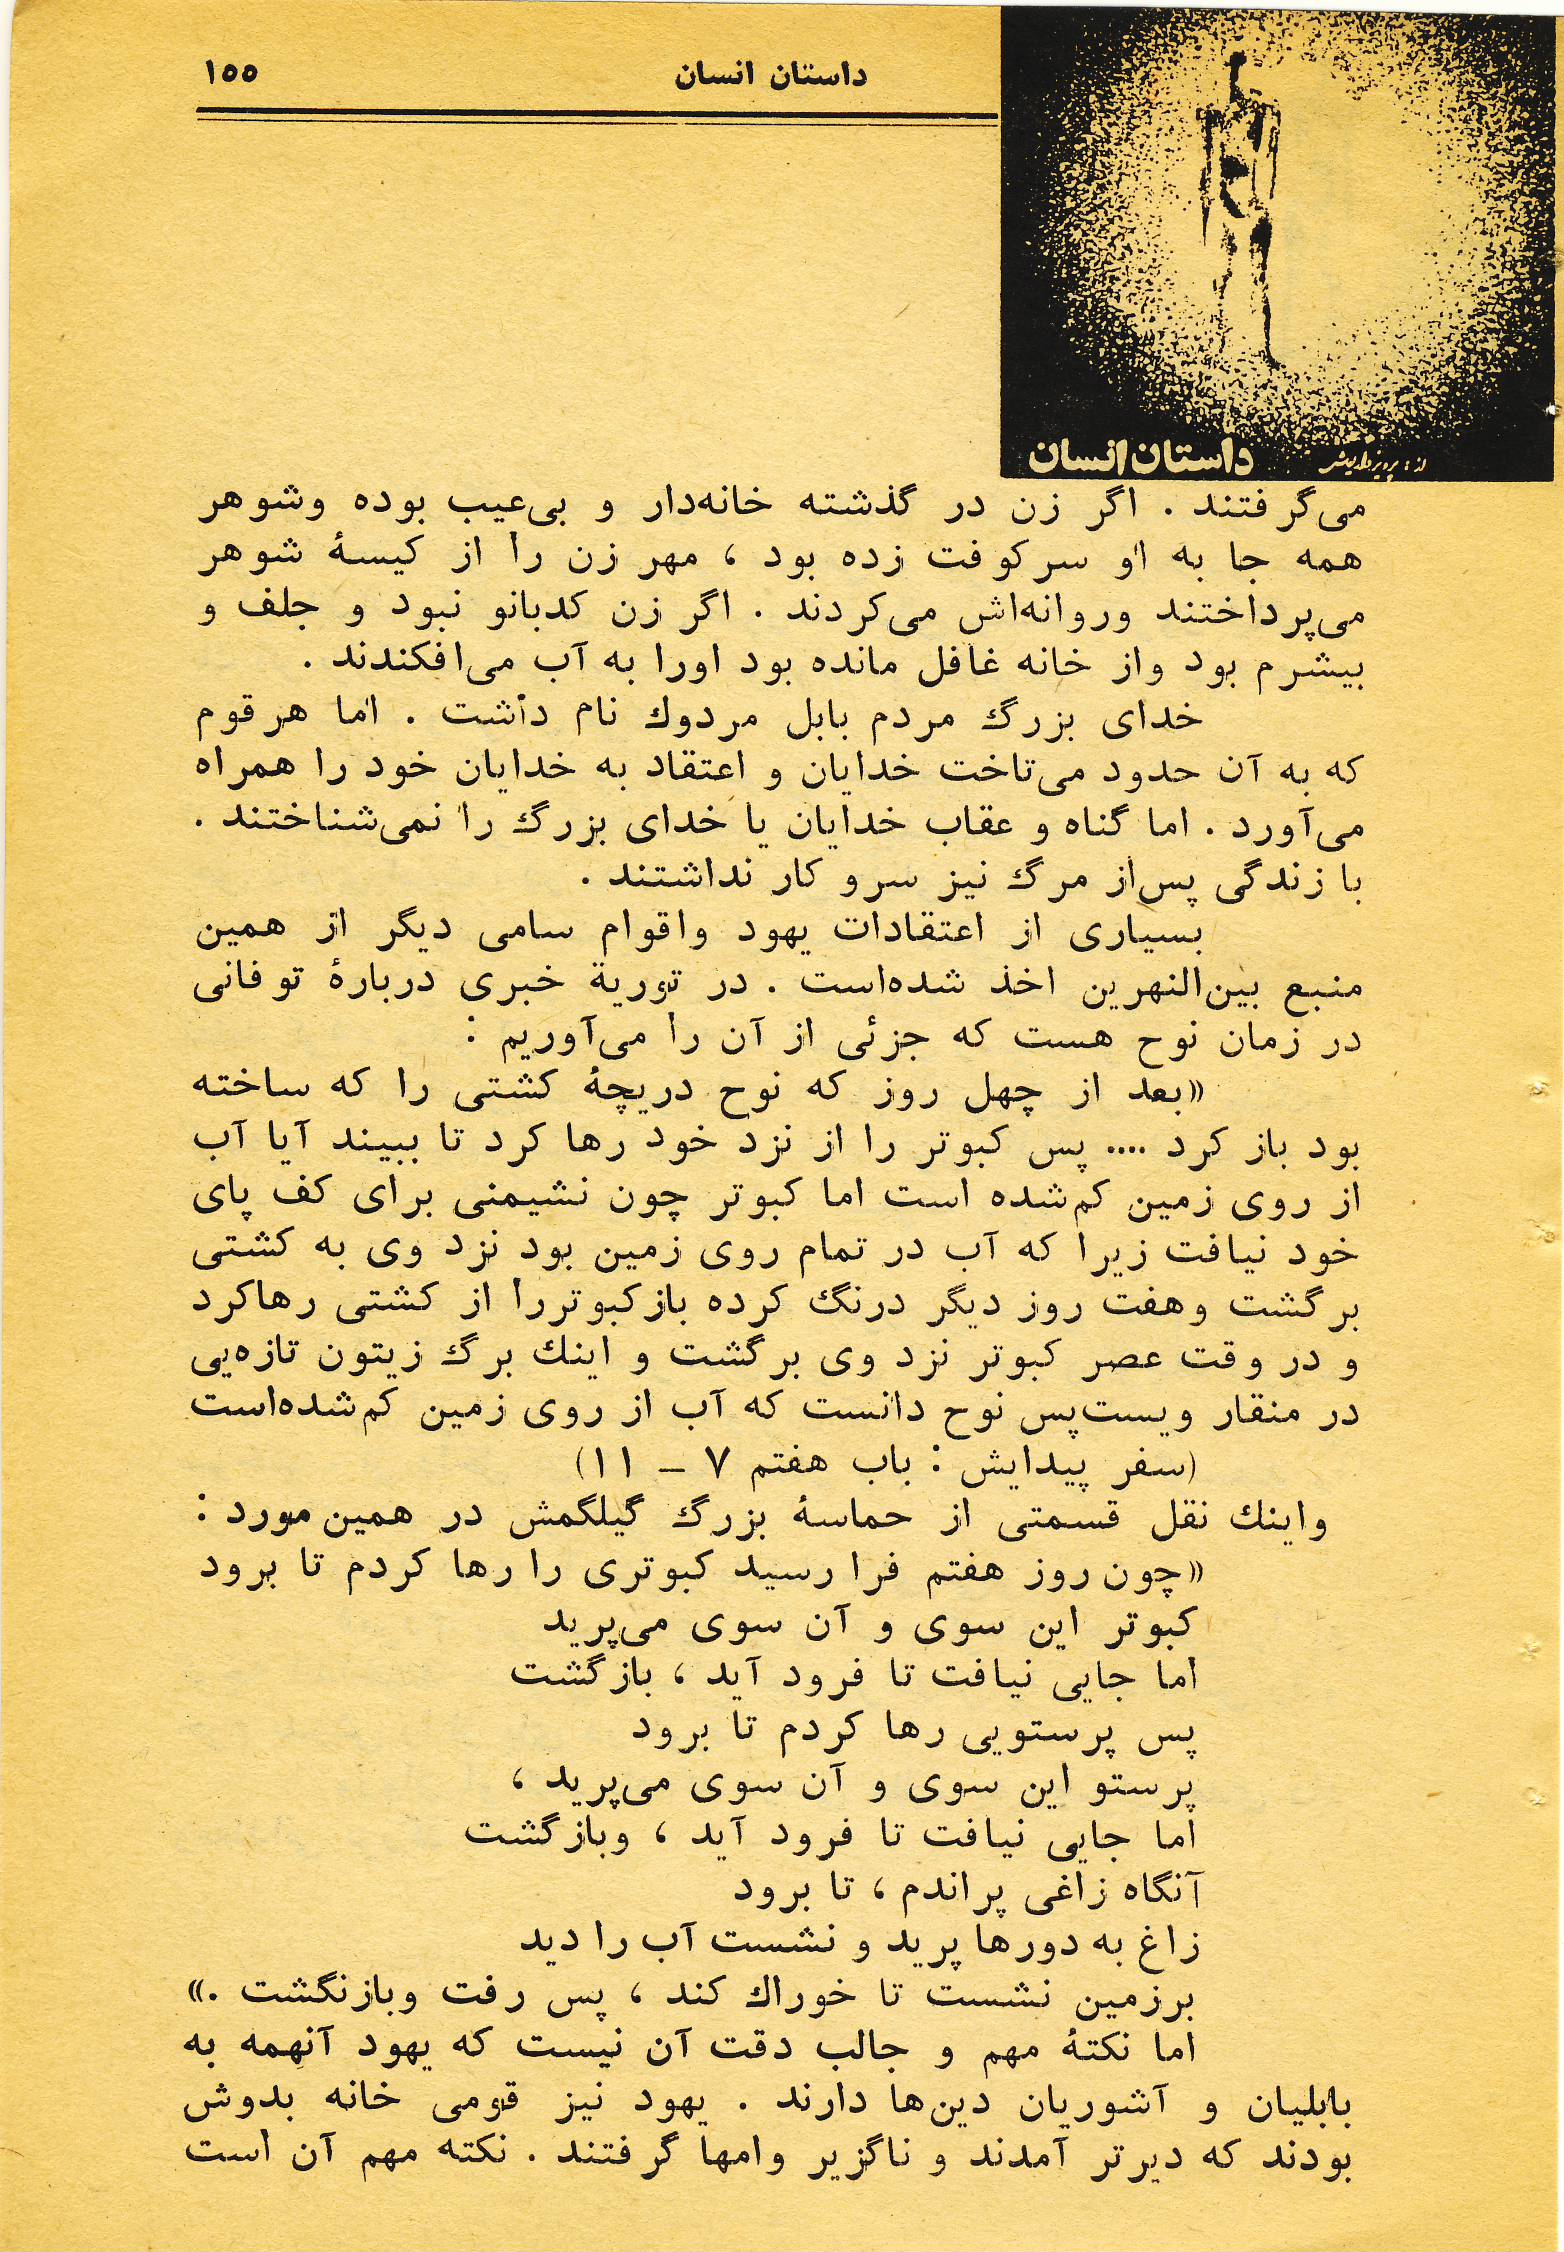 داستان انسان
۱۵۵
داستان انسان
از: پرویز داریوش
می‌گرفتند . اگر زن در گذشته خانه‌دار و بی‌عیب بوده وشوهر
همه جا به او سرکوفت زده بود ، مهر زن را از کیسهٔ شوهر
می‌پرداختند وروانه‌اش می‌کردند . اگر زن کدبانو نبود و جلف و
بیشرم بود واز خانه غافل مانده بود اورا به آب می‌افکندند .
خدای بزرگ مردم بابل مردوك نام داشت . اما هرقوم
که به آن حدود می‌تاخت خدایان و اعتقاد به خدایان خود را همراه
می‌آورد . اما گناه و عقاب خدایان یا خدای بزرگ را نمی‌شناختند .
با زندگی پس‌از مرگ نیز سرو کار نداشتند .
بسیاری از اعتقادات یهود واقوام سامی دیگر از همین
منبع بین‌النهرین اخذ شده‌است . در توریة خبری دربارهٔ توفانی
در زمان نوح هست که جزئی از آن را می‌آوریم :
«بعد از چهل روز که نوح دریچهٔ کشتی را که ساخته
بود باز کرد .... پس کبوتر را از نزد خود رها کرد تا ببیند آیا آب
از روی زمین کم‌شده است اما کبوتر چون نشیمنی برای کف پای
خود نیافت زیرا که آب در تمام روی زمین بود نزد وی به کشتی
برگشت وهفت روز دیگر درنگ کرده بازکبوتررا از کشتی رهاکرد
و در وقت عصر کبوتر نزد وی برگشت و اینك برگ زیتون تازه‌یی
در منقار ویست‌پس نوح دانست که آب از روی زمین کم‌شده‌است
(سفر پیدایش : باب هفتم ۷ – ۱۱)
واینك نقل قسمتی از حماسهٔ بزرگ گیلگمش در همین مورد :
«چون روز هفتم فرا رسید کبوتری را رها کردم تا برود
کبوتر این سوی و آن سوی می‌پرید
اما جایی نیافت تا فرود آید ، بازگشت
پس پرستویی رها کردم تا برود
پرستو این سوی و آن سوی می‌پرید ،
اما جایی نیافت تا فرود آید ، وبازگشت
آنگاه زاغی پراندم ، تا برود
زاغ به دورها پرید و نشست آب را دید
برزمین نشست تا خوراك کند ، پس رفت وبازنگشت .»
اما نکتهٔ مهم و جالب دقت آن نیست که یهود آنهمه به
بابلیان و آشوریان دین‌ها دارند . یهود نیز قومی خانه بدوش
بودند که دیرتر آمدند و ناگزیر وامها گرفتند . نکته مهم آن است